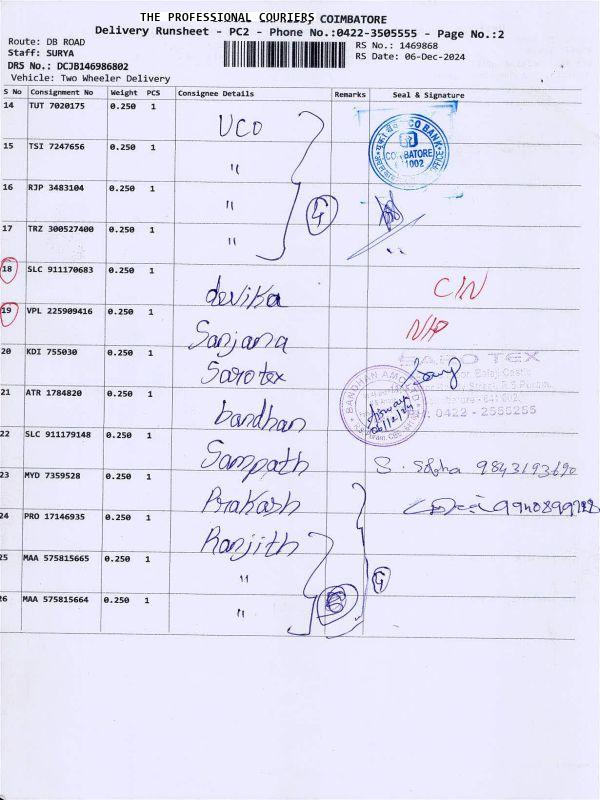 THE PROFESSIONAL COURIERS COIMBATORE
Delivery Runsheet - PC2 - Phone No.:0422-3505555 - Page No.:2
Route: DB ROAD
RS No.: 1469868
Staff: SURYA
RS Date: 06-Dec-2024
DRS No.: DCJB146986802
Vehicle: Two Wheeler Delivery
S No Consignment No Weight PCS Consignee Details Remarks Seal & Signature
14 TUT 7020175 0.250 1 UCO
15 TSI 7247656 0.250 1 "
CO BANK
COIMBATORE
OFFICE
16 RJP 3483104 0.250 1 "
4
17 TRZ 300527400 0.250 1 "
18 SLC 911170683 0.250 1 devika CIN
19 VPL 225909416 0.250 1 Sanjana N/P
20 KDI 755030 0.250 1 Sarotex
SAROTEX
R.S.Puram,
0422 - 2555255
21 ATR 1784820 0.250 1 bandhan
BANDHAN
06/12/24
22 SLC 911179148 0.250 1 Sampath S. 9843193690
23 MYD 7359528 0.250 1 Prakash
24 PRO 17146935 0.250 1 Ranjith
25 MAA 575815665 0.250 1 "
4
26 MAA 575815664 0.250 1 "